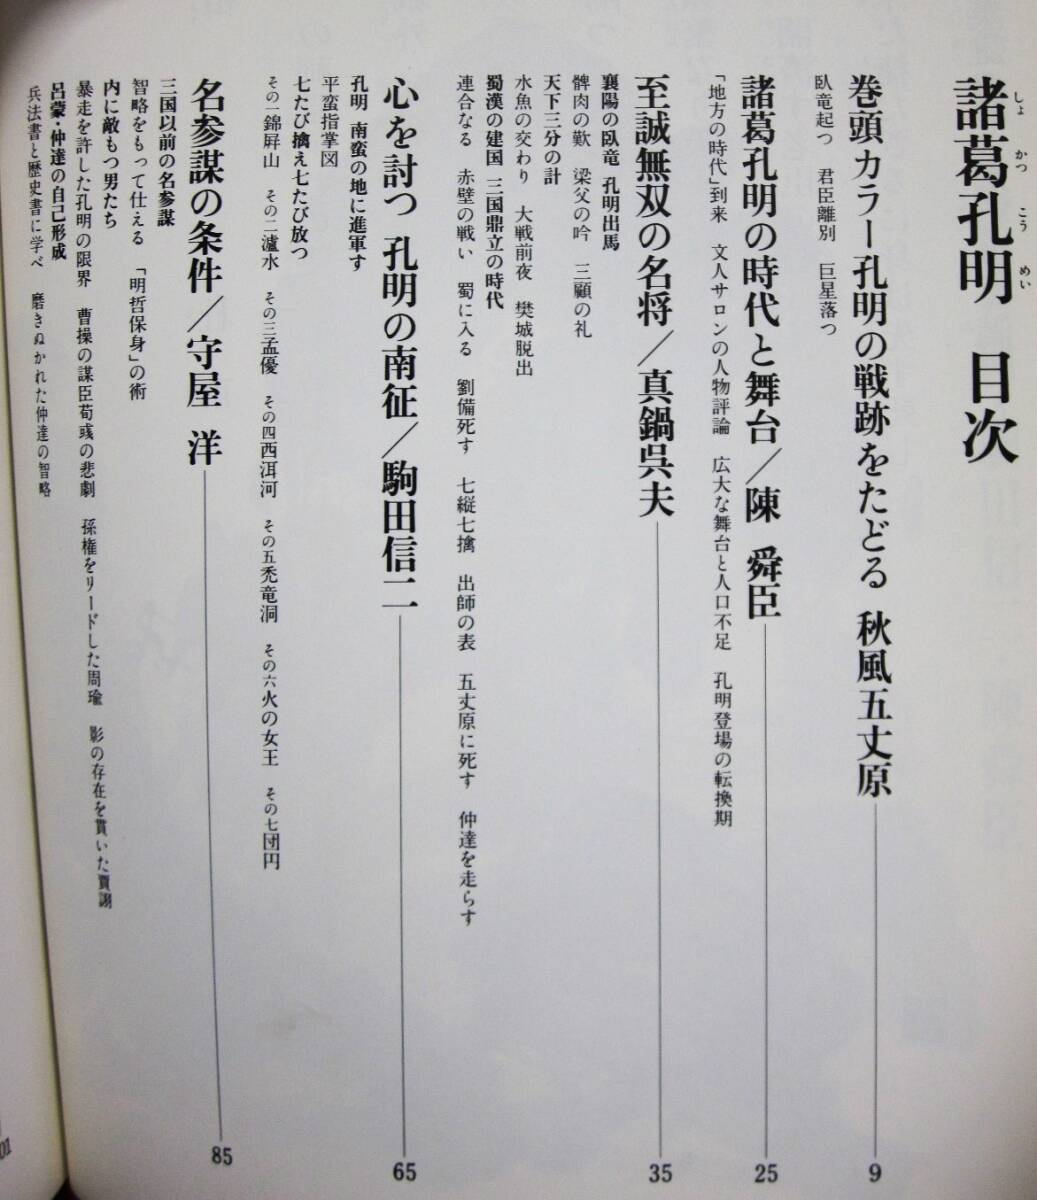 諸葛孔明 目次
しょ かつ こう めい
巻頭カラー孔明の戦跡をたどる 秋風五丈原 9
臥竜起つ 君臣離別 巨星落つ
諸葛孔明の時代と舞台／陳 舜臣 25
「地方の時代」到来 文人サロンの人物評論 広大な舞台と人口不足 孔明登場の転換期
至誠無双の名将／真鍋呉夫 35
襄陽の臥竜 孔明出馬
髀肉の歎 梁父の吟 三顧の礼
天下三分の計
水魚の交わり 大戦前夜 樊城脱出
蜀漢の建国 三国鼎立の時代
連合なる 赤壁の戦い 蜀に入る 劉備死す 七縦七擒 出師の表 五丈原に死す 仲達を走らす
心を討つ 孔明の南征／駒田信二 65
孔明 南蛮の地に進軍す
平蛮指掌図
七たび擒え七たび放つ
その一錦屛山 その二瀘水 その三孟優 その四西洱河 その五禿竜洞 その六火の女王 その七団円
名参謀の条件／守屋 洋 85
三国以前の名参謀
智略をもって仕える 「明哲保身」の術
内に敵もつ男たち
暴走を許した孔明の限界 曹操の謀臣荀彧の悲劇 孫権をリードした周瑜 影の存在を貫いた賈詡
呂蒙・仲達の自己形成
兵法書と歴史書に学べ 磨きぬかれた仲達の智略